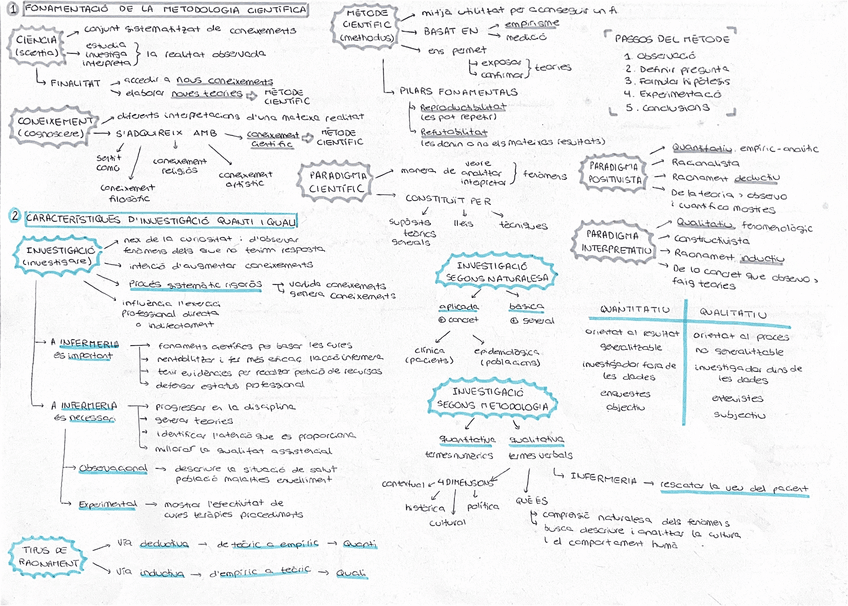 1 FONAMENTACIÓ DE LA METODOLOGIA CIENTÍFICA
CIÈNCIA
(scentia)
conjunt sistematitzat de coneixements
estudia
investiga
interpreta
la realitat observada
FINALITAT
accedir a nous coneixements
elaborar noves teories ⇒ MÈTODE
CIENTÍFIC
CONEIXEMENT
(cognoscere)
diferents interpretacions d'una mateixa realitat
S'ADQUIREIX AMB
coneixement
científic
MÈTODE
CIENTÍFIC
sentit
comú
coneixement
filosòfic
coneixement
religiós
coneixement
artístic
MÈTODE
CIENTÍFIC
(methodus)
mitjà utilitzat per aconseguir un fi
BASAT EN
empirisme
medició
ens permet
exposar
confirmar
teories
PILARS FONAMENTALS
Reproductibilitat
(es pot repetir)
Refutabilitat
(es donin o no els mateixos resultats)
PASSOS DEL MÈTODE
1. Observació
2. Definir pregunta
3. Formular hipòtesis
4. Experimentació
5. Conclusions
PARADIGMA
CIENTÍFIC
manera de
veure
analitzar
interpretar
fenòmens
CONSTITUÏT PER
supòsits
teòrics
generals
lleis
tècniques
PARADIGMA
POSITIVISTA
Quantitatiu, empíric-analític
Racionalista
Raonament deductiu
De la teoria > observo
i quantifico mostres
PARADIGMA
INTERPRETATIU
Qualitatiu, fenomenològic
Constructivista
Raonament inductiu
De lo concret que observo >
faig teories
2 CARACTERÍSTIQUES D'INVESTIGACIÓ QUANTI I QUALI
INVESTIGACIÓ
(investigare)
neix de la curiositat i d'observar
fenòmens dels que no tenim resposta
intenció d'augmentar coneixements
Procés sistemàtic rigorós
valida coneixements
genera coneixements
influència l'exercici
professional directa
o indirectament
A INFERMERIA
és important
fonaments científics per basar les cures
rentabilitzar i fer més eficaç l'acció infermera
tenir evidències per recolzar petició de recursos
defensar estatus professional
A INFERMERIA
és necessari
progressar en la disciplina
generar teories
identificar l'atenció que es proporciona
millorar la qualitat assistencial
Observacional → descriure la situació de salut
població malalties envelliment
Experimental → mostrar l'efectivitat de
cures teràpies procediments
TIPUS DE
RAONAMENT
Via deductiva → de teòric a empíric → Quanti
Via inductiva → d'empíric a teòric → Quali
INVESTIGACIÓ
SEGONS NATURALESA
aplicada
⊕ concret
bàsica
⊕ general
clínica
(pacients)
epidemiològica
(poblacions)
INVESTIGACIÓ
SEGONS METODOLOGIA
quantitativa
termes numèrics
qualitativa
termes verbals
contextual
4 DIMENSIONS
històrica
cultural
política
QUÈ ÉS
INFERMERIA → rescatar la veu del pacient
comprensió naturalesa dels fenòmens
busca descriure i analitzar la cultura
i el comportament humà
QUANTITATIU
QUALITATIU
orientat al resultat
orientat al procés
generalitzable
no generalitzable
investigador fora de
les dades
investigador dins de
les dades
enquestes
entrevistes
objectiu
subjectiu